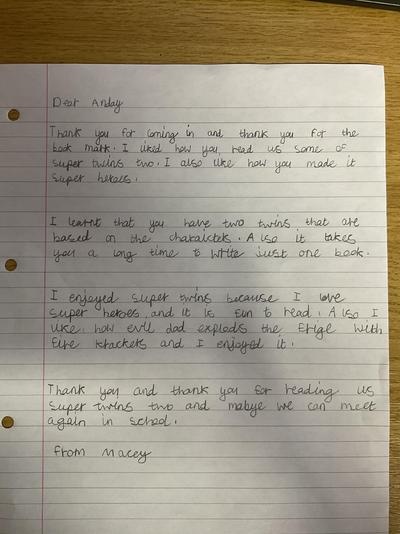 Dear Anday
Thank you for coming in and thank you for the
book mark. I liked how you read us some of
super twins two. I also like how you made it
super heroes.
I learnt that you have two twins that are
based on the charaicters. Also it takes
you a long time to write just one book.
I enjoyed super twins because I love
super heroes, and it is fun to read. Also I
like how evil dad explods the frige with
fire krackers and I enjoyed it.
Thank you and thank you for reading us
super twins two and mabye we can meet
again in school.
from Macey